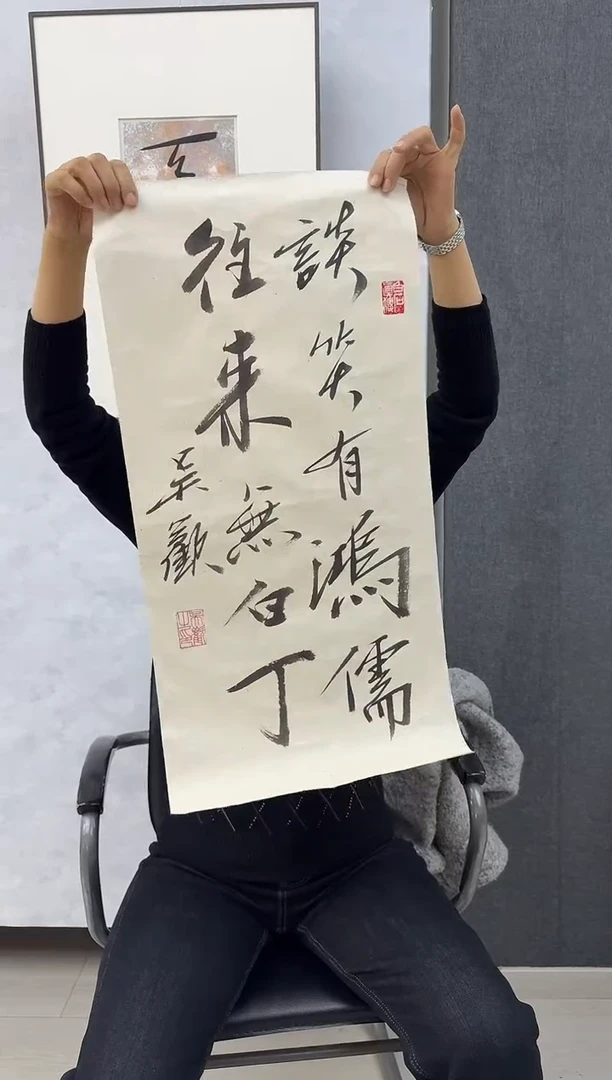 談笑有鴻儒
往來無白丁
吴歡